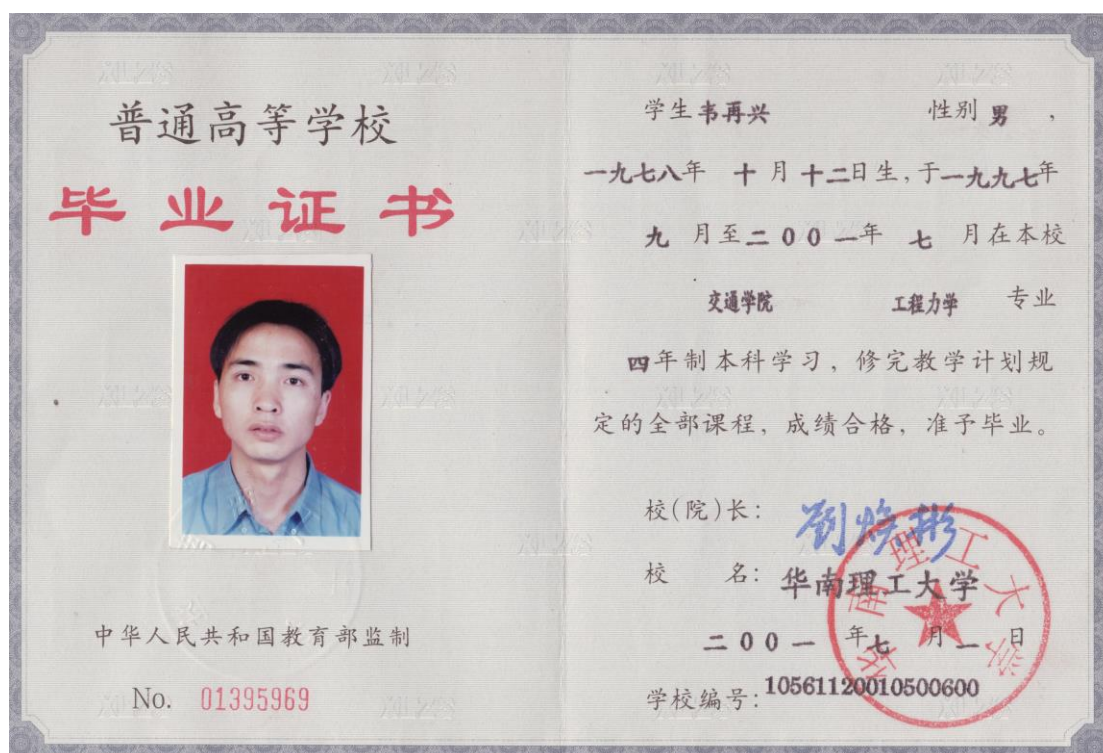 普通高等学校
毕业证书
中华人民共和国教育部监制
No. 01395969
学生韦再兴 性别 男 ，
一九七八年 十 月 十二日生，于一九九七年
九 月至二00一年 七 月在本校
交通学院 工程力学 专业
四年制本科学习，修完教学计划规
定的全部课程，成绩合格，准予毕业。
校(院)长：刘焕彬
校 名：华南理工大学
华南理工大学
二00一 年七 月一 日
学校编号：105611200105000600